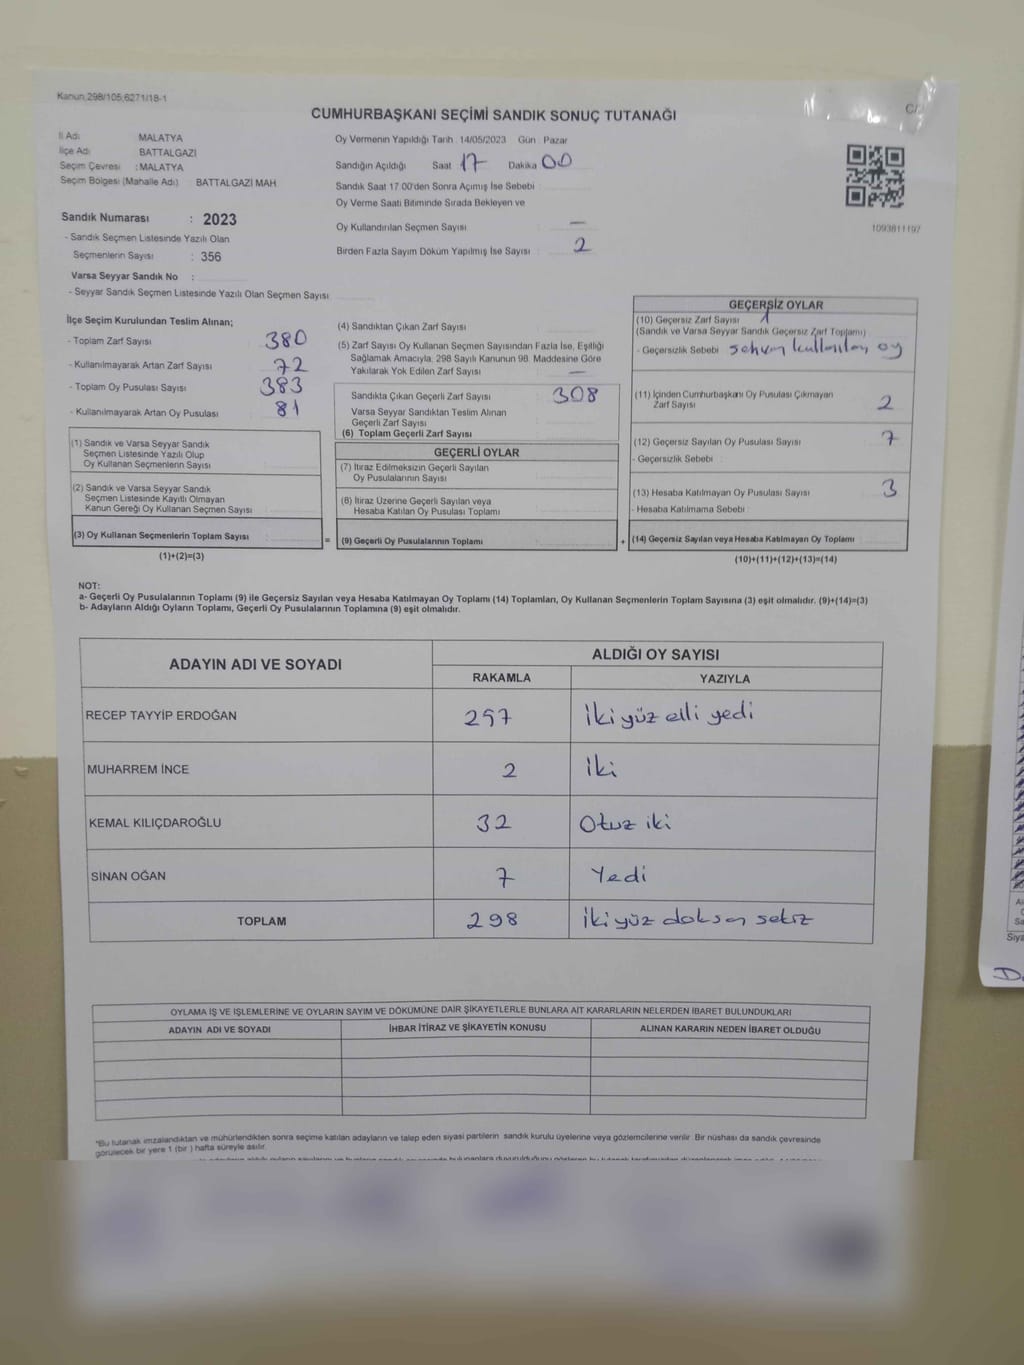 Kanun 298/105,6271/18-1
C/
CUMHURBAŞKANI SEÇİMİ SANDIK SONUÇ TUTANAĞI
İl Adı MALATYA
İlçe Adı BATTALGAZİ
Seçim Çevresi : MALATYA
Seçim Bölgesi (Mahalle Adı) BATTALGAZİ MAH.
Sandık Numarası : 2023
- Sandık Seçmen Listesinde Yazılı Olan
Seçmenlerin Sayısı : 356
Varsa Seyyar Sandık No :
- Seyyar Sandık Seçmen Listesinde Yazılı Olan Seçmen Sayısı
Oy Vermenin Yapıldığı Tarih : 14/05/2023 Gün : Pazar
Sandığın Açıldığı Saat 17 Dakika 00
Sandık Saat 17:00'den Sonra Açımış İse Sebebi
Oy Verme Saati Bitiminde Sırada Bekleyen ve
Oy Kullandırılan Seçmen Sayısı : —
Birden Fazla Sayım Döküm Yapılmış İse Sayısı : 2
1093811197
İlçe Seçim Kurulundan Teslim Alınan;
- Toplam Zarf Sayısı : 380
- Kullanılmayarak Artan Zarf Sayısı : 72
- Toplam Oy Pusulası Sayısı : 383
- Kullanılmayarak Artan Oy Pusulası : 81
(1) Sandık ve Varsa Seyyar Sandık
Seçmen Listesinde Yazılı Olup
Oy Kullanan Seçmenlerin Sayısı
(2) Sandık ve Varsa Seyyar Sandık
Seçmen Listesinde Kayıtlı Olmayan
Kanun Gereği Oy Kullanan Seçmen Sayısı
(3) Oy Kullanan Seçmenlerin Toplam Sayısı
(1)+(2)=(3)
(4) Sandıktan Çıkan Zarf Sayısı
(5) Zarf Sayısı Oy Kullanan Seçmen Sayısından Fazla İse, Eşitliği
Sağlamak Amacıyla, 298 Sayılı Kanunun 98. Maddesine Göre
Yakılarak Yok Edilen Zarf Sayısı : —
Sandıkta Çıkan Geçerli Zarf Sayısı : 308
Varsa Seyyar Sandıktan Teslim Alınan
Geçerli Zarf Sayısı
(6) Toplam Geçerli Zarf Sayısı
GEÇERLİ OYLAR
(7) İtiraz Edilmeksizin Geçerli Sayılan
Oy Pusulasının Sayısı
(8) İtiraz Üzerine Geçerli Sayılan veya
Hesaba Katılan Oy Pusulası Toplamı
= (9) Geçerli Oy Pusulalarının Toplamı
GEÇERSİZ OYLAR
(10) Geçersiz Zarf Sayısı 1
(Sandık ve Varsa Seyyar Sandık Geçersiz Zarf Toplamı)
- Geçersizlik Sebebi : sehven kullanılan oy
(11) İçinden Cumhurbaşkanı Oy Pusulası Çıkmayan
Zarf Sayısı 2
(12) Geçersiz Sayılan Oy Pusulası Sayısı 7
- Geçersizlik Sebebi :
(13) Hesaba Katılmayan Oy Pusulası Sayısı 3
- Hesaba Katılmama Sebebi :
+ (14) Geçersiz Sayılan veya Hesaba Katılmayan Oy Toplamı
(10)+(11)+(12)+(13)=(14)
NOT:
a- Geçerli Oy Pusulalarının Toplamı (9) ile Geçersiz Sayılan veya Hesaba Katılmayan Oy Toplamı (14) Toplamları, Oy Kullanan Seçmenlerin Toplam Sayısına (3) eşit olmalıdır. (9)+(14)=(3)
b- Adayların Aldığı Oyların Toplamı, Geçerli Oy Pusulalarının Toplamına (9) eşit olmalıdır.
ADAYIN ADI VE SOYADI
ALDIĞI OY SAYISI
RAKAMLA YAZIYLA
RECEP TAYYİP ERDOĞAN 257 İki yüz elli yedi
MUHARREM İNCE 2 İki
KEMAL KILIÇDAROĞLU 32 Otuz iki
SİNAN OĞAN 7 Yedi
TOPLAM 298 İki yüz doksan sekiz
OYLAMA İŞ VE İŞLEMLERİNE VE OYLARIN SAYIM VE DÖKÜMÜNE DAİR ŞİKAYETLERLE BUNLARA AİT KARARLARIN NELERDEN İBARET BULUNDUKLARI
ADAYIN ADI VE SOYADI İHBAR İTİRAZ VE ŞİKAYETİN KONUSU ALINAN KARARIN NEDEN İBARET OLDUĞU
*Bu tutanak imzalandıktan ve mühürlendikten sonra seçime katılan adayların ve talep eden siyasi partilerin sandık kurulu üyelerine veya gözlemcilerine verilir. Bir nüshası da sandık çevresinde
görülecek bir yere 1 (bir ) hafta süreyle asılır.